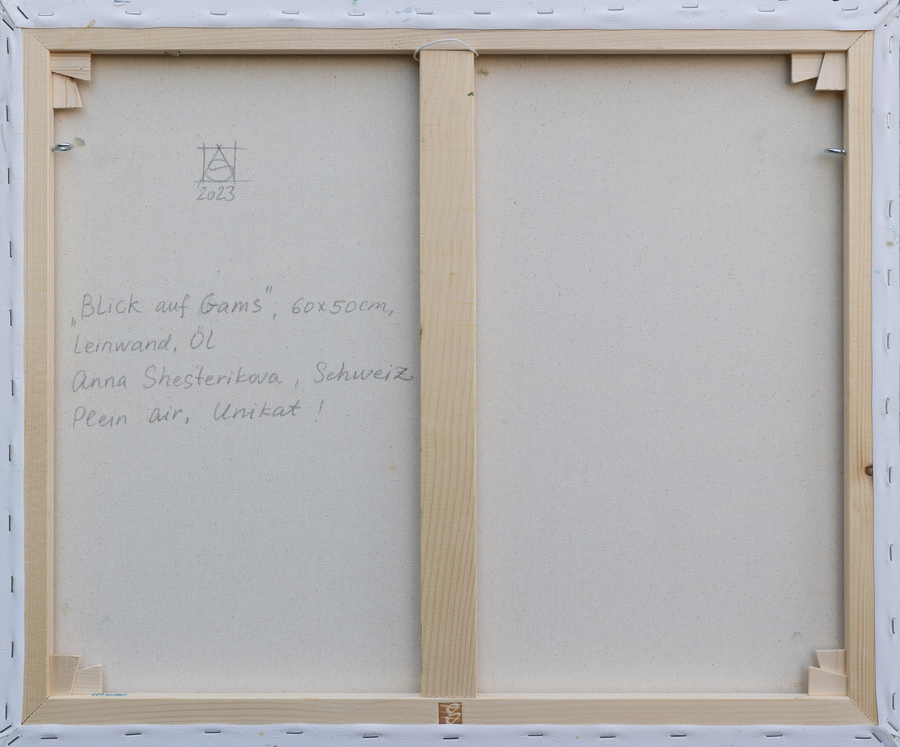 AS
2023
„Blick auf Gams", 60x50cm,
Leinwand, Öl
Anna Shesterikova, Schweiz
Plein air, Unikat!